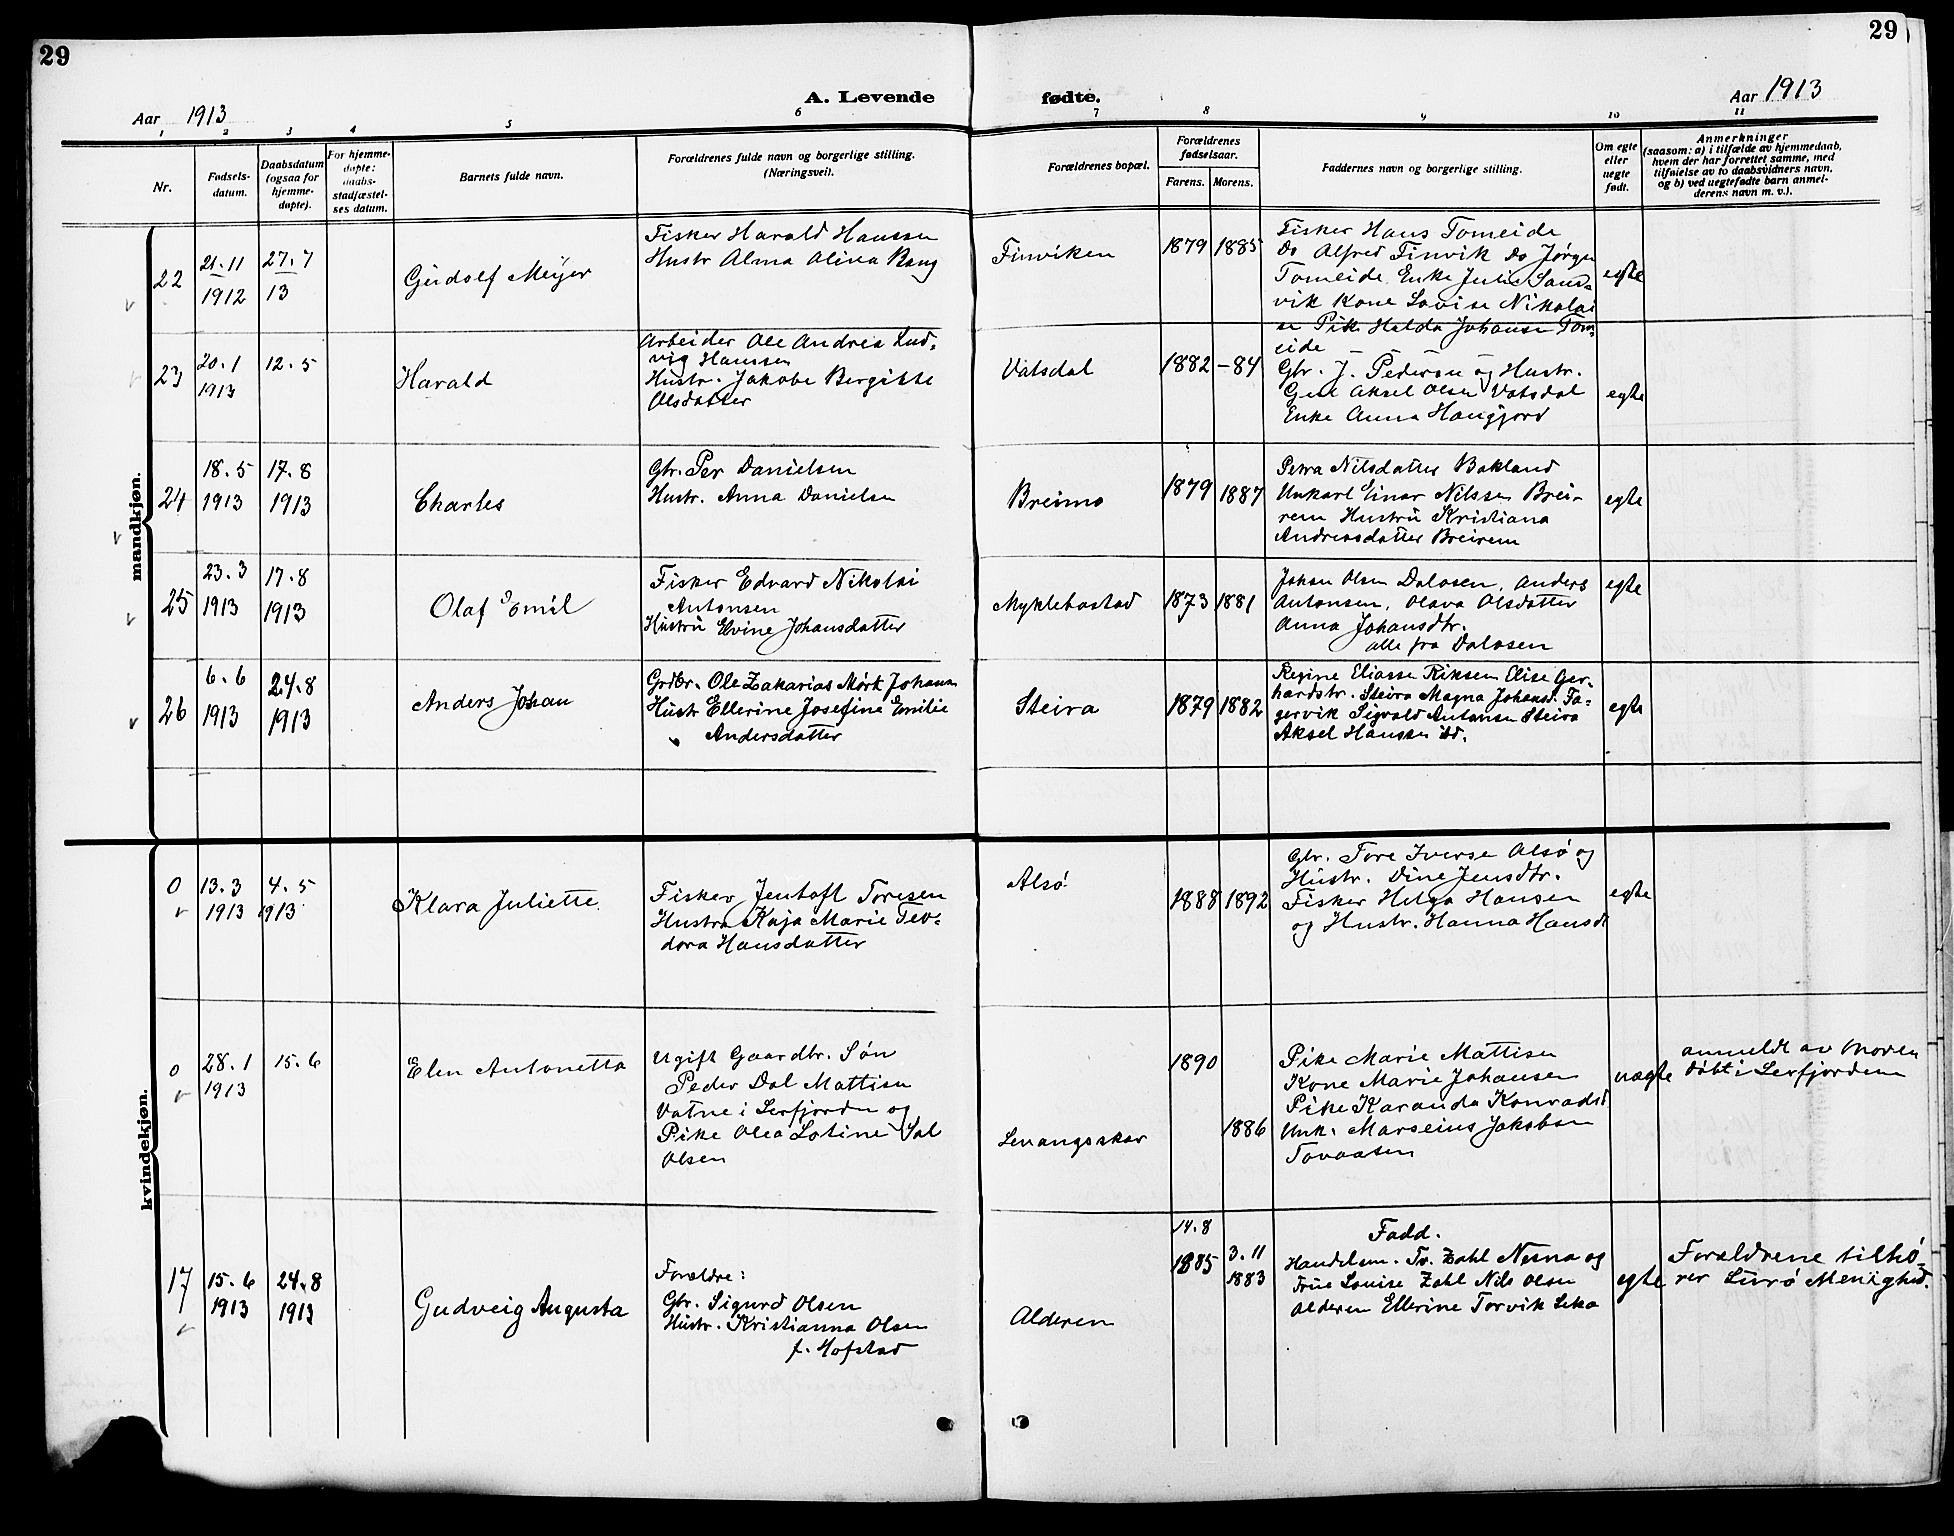 29
29
A. Levende
fødte.
Aar 1913
Aar 1913
1
2
3
4
5
6
7
8
9
10
11
Nr.
Fødsels-
datum.
Daabsdatum
(ogsaa for
hjemme-
døpte).
For hjemme-
døpte:
daabs-
stadfæstel-
ses datum.
Barnets fulde navn.
Forældrenes fulde navn og borgerlige stilling.
(Næringsvei).
Forældrenes bopæl.
Forældrenes
fødselsaar.
Farens.
Morens.
Faddernes navn og borgerlige stilling.
Om egte
eller
uegte
født.
Anmerkninger
(saasom: a) i tilfælde av hjemmedaab,
hvem der har forrettet samme, med
tilføielse av to daabsvidners navn,
og b) ved uegtefødte barn anmel-
derens navn m. v.).
mandkjøn.
22
21.11
1912
27.7
13
Gudolf Meyer
Fisker Harald Hanssen
Hustr Alma Olina Bang
Finviken
1879
1885
Fisker Hans Tomeide
Do Alfred Finvik Do Jørgen
Tomeide, Enke Julie Sand-
vik Kone Lovise Nikolai
se Pike Halda Johansen Tom-
eide
egte
23
20.1
1913
12.5
Harald
Arbeider Ole Andreas Lud-
vig Hanssen
Hustr. Jakobe Bergitte
Olsdatter
Vatsdal
1882
-84
Gbr. J. Pedersen og Hustr.
Aksel Olsen Vatsdal
Enke Anna Haugjord
egte
24
18.5
1913
17.8
1913
Charles
Gbr. Per Danielsen
Hustr. Anna Danielsen
Breimo
1879
1887
Petra Nilsdatter Bakland
Unkarl Einar Nilssen Brei-
rem Hustru Kristiana
Andreasdatter Breirem
egte
25
23.3
1913
17.8
1913
Olaf Emil
Fisker Edvard Nikolai
Antonsen
Hustru Elvine Johansdatter
Myklebostad
1873
1881
Johan Olsen Dalosen, Anders
Antonsen, Olava Olsdatter
Anna Johansdtr.
alle fra Dalosen
egte
26
6.6
1913
24.8
1913
Anders Johan
Grdbr. Ole Zakarias Mørk Johansen
Hustr Ellerine Josefine Emilie
Andersdatter
Steira
1879
1882
Regine Eliasse Riksem Elise Ger-
hardstr. Steira Magna Johansd. Fa-
gervik Sigvald Antonsen Steira
Aksel Hanssen sd.
egte
kvindekjøn.
0
13.3
1913
4.5
1913
Klara Juliette
Fisker Jentoft Toresen
Hustru Kaja Marie Teo-
dora Hansdatter
Alsø
1888
1892
Gbr. Tore Iversen Alsø og
Hustr. Dine Jensdtr.
Fisker Helge Hansen
og Hustr. Hanna Hansdt
egte
0
28.1
1913
15.6
Elen Antonetta
Ugift Gaardbr. Søn
Peder Dal Mattisen
Vatne i Lerfjorden og
Pike Olea Lotine Sal
Olsen
Levangsskar
1890
1886
Pike Marie Mattisen
Kone Marie Johansen
Pike Karanda Konradsd
Unk. Marseius Jakobsen
Tovaasen
uægte
anmeldt av Moren
døbt i Lerfjorden
17
15.6
1913
24.8
1913
Gudveig Augusta
Forældre:
Gbr. Sigurd Olsen
Hustr. Kristianna Olsen
f. Hofstad
Alderen
14.8
1885
3.11
1883
Fadd.
Handelsm. Tr. Zahl Nesna og
Frue Louise Zahl Nils Olsen
Alderen Ellerine Torvik Leka
egte
Forældrene tilhø-
rer Lurø Menighed.